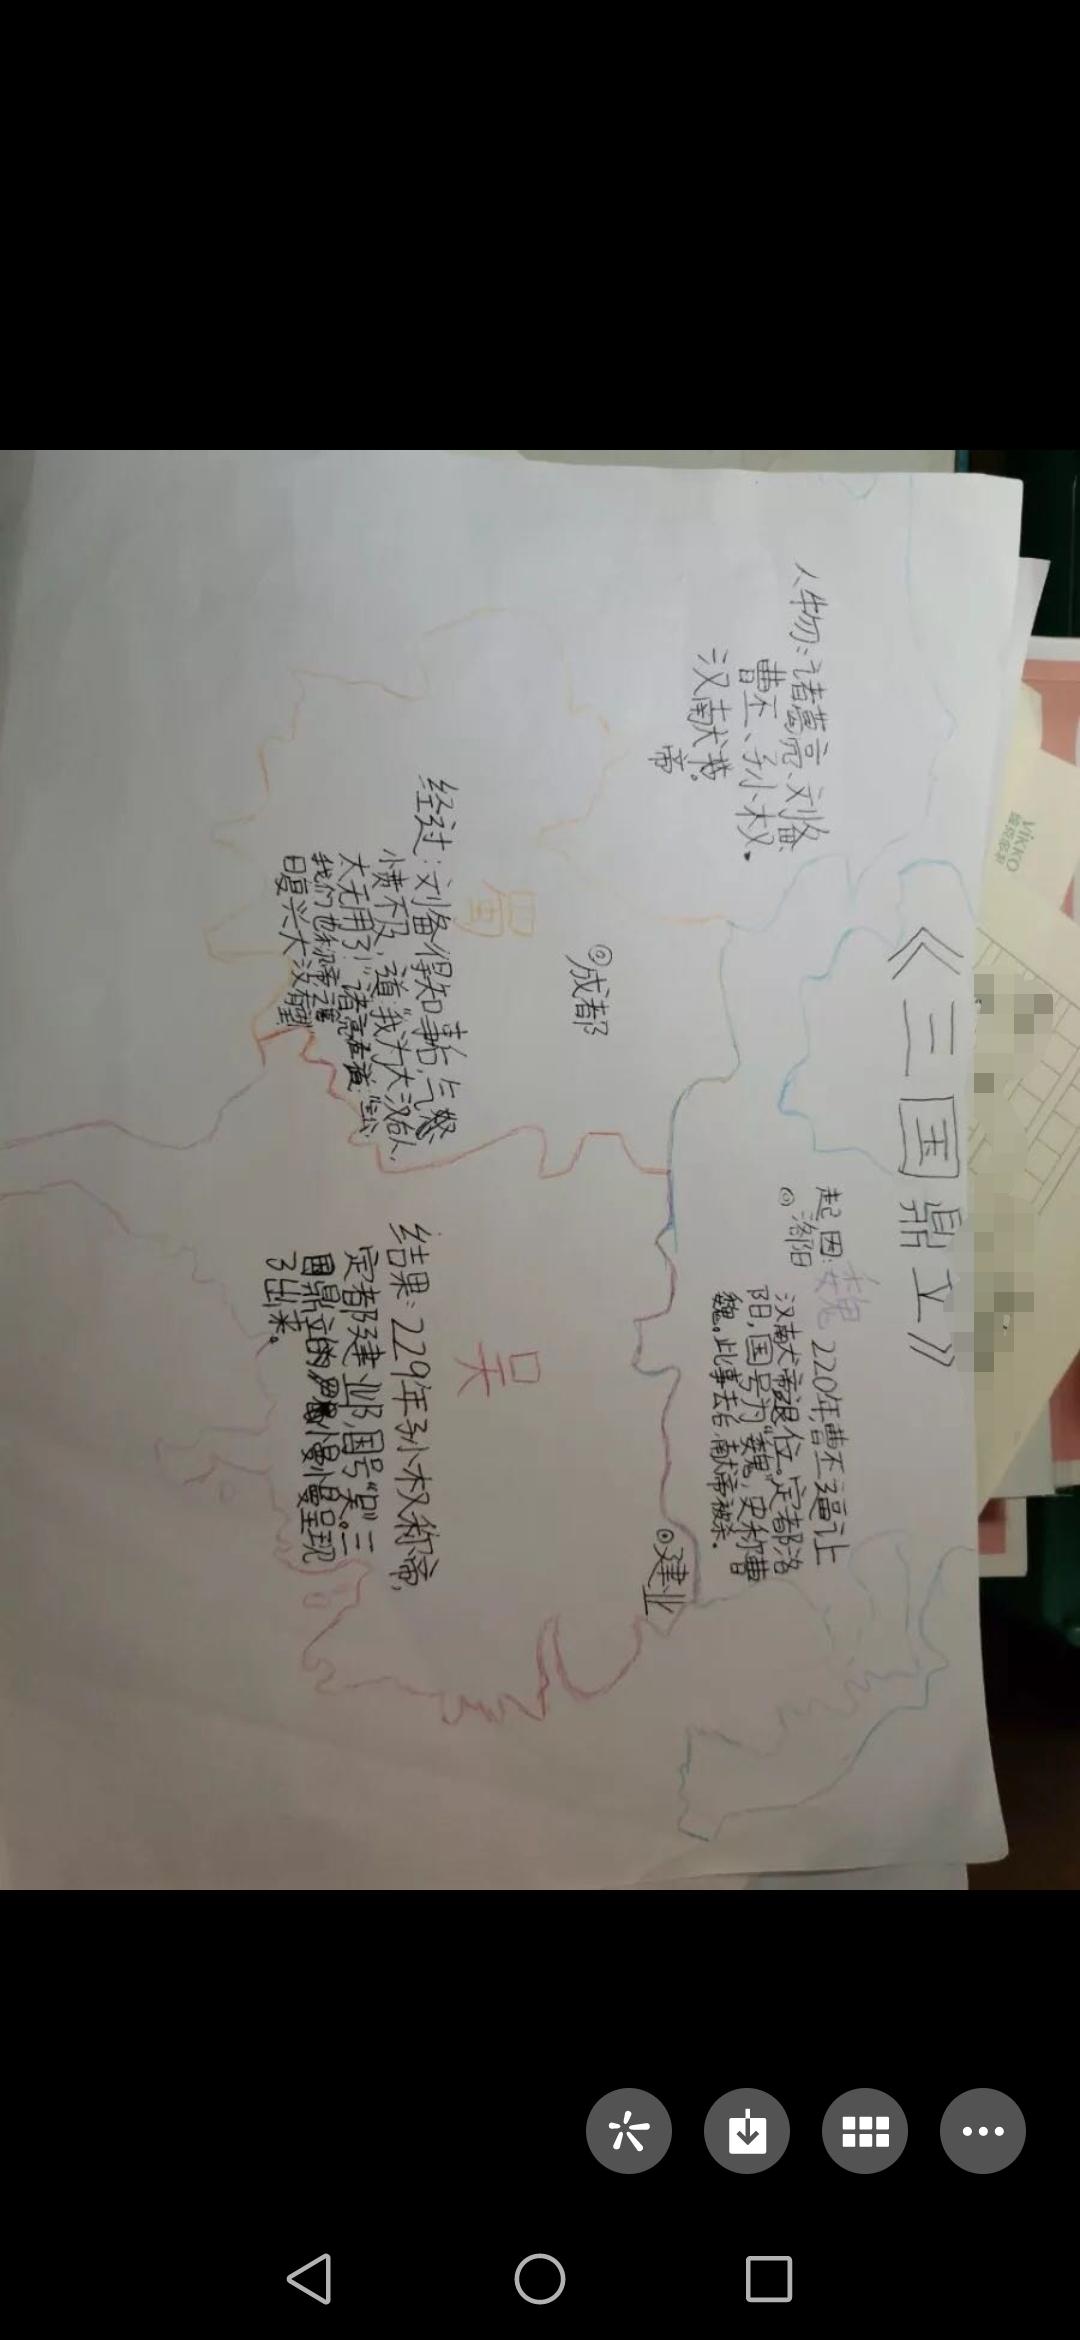 《三国鼎立》
人物：诸葛亮、刘备
曹丕、孙权、
汉献帝。
帝
起因：
魏
220年，曹丕逼让
汉献帝退位。定都洛
阳，国号为“魏”，史称曹
魏。此事去后，献帝被杀。
◎洛阳
◎成都
蜀
经过：刘备得知
气
愤不及，道：“我为大汉
太无用了！”诸
我们也称帝
日复兴大汉
吴
◎建业
结果：229年孙权称帝，
定都建业，国号“吴”。三
国鼎立的
慢慢呈现
了出来。
VIKKO